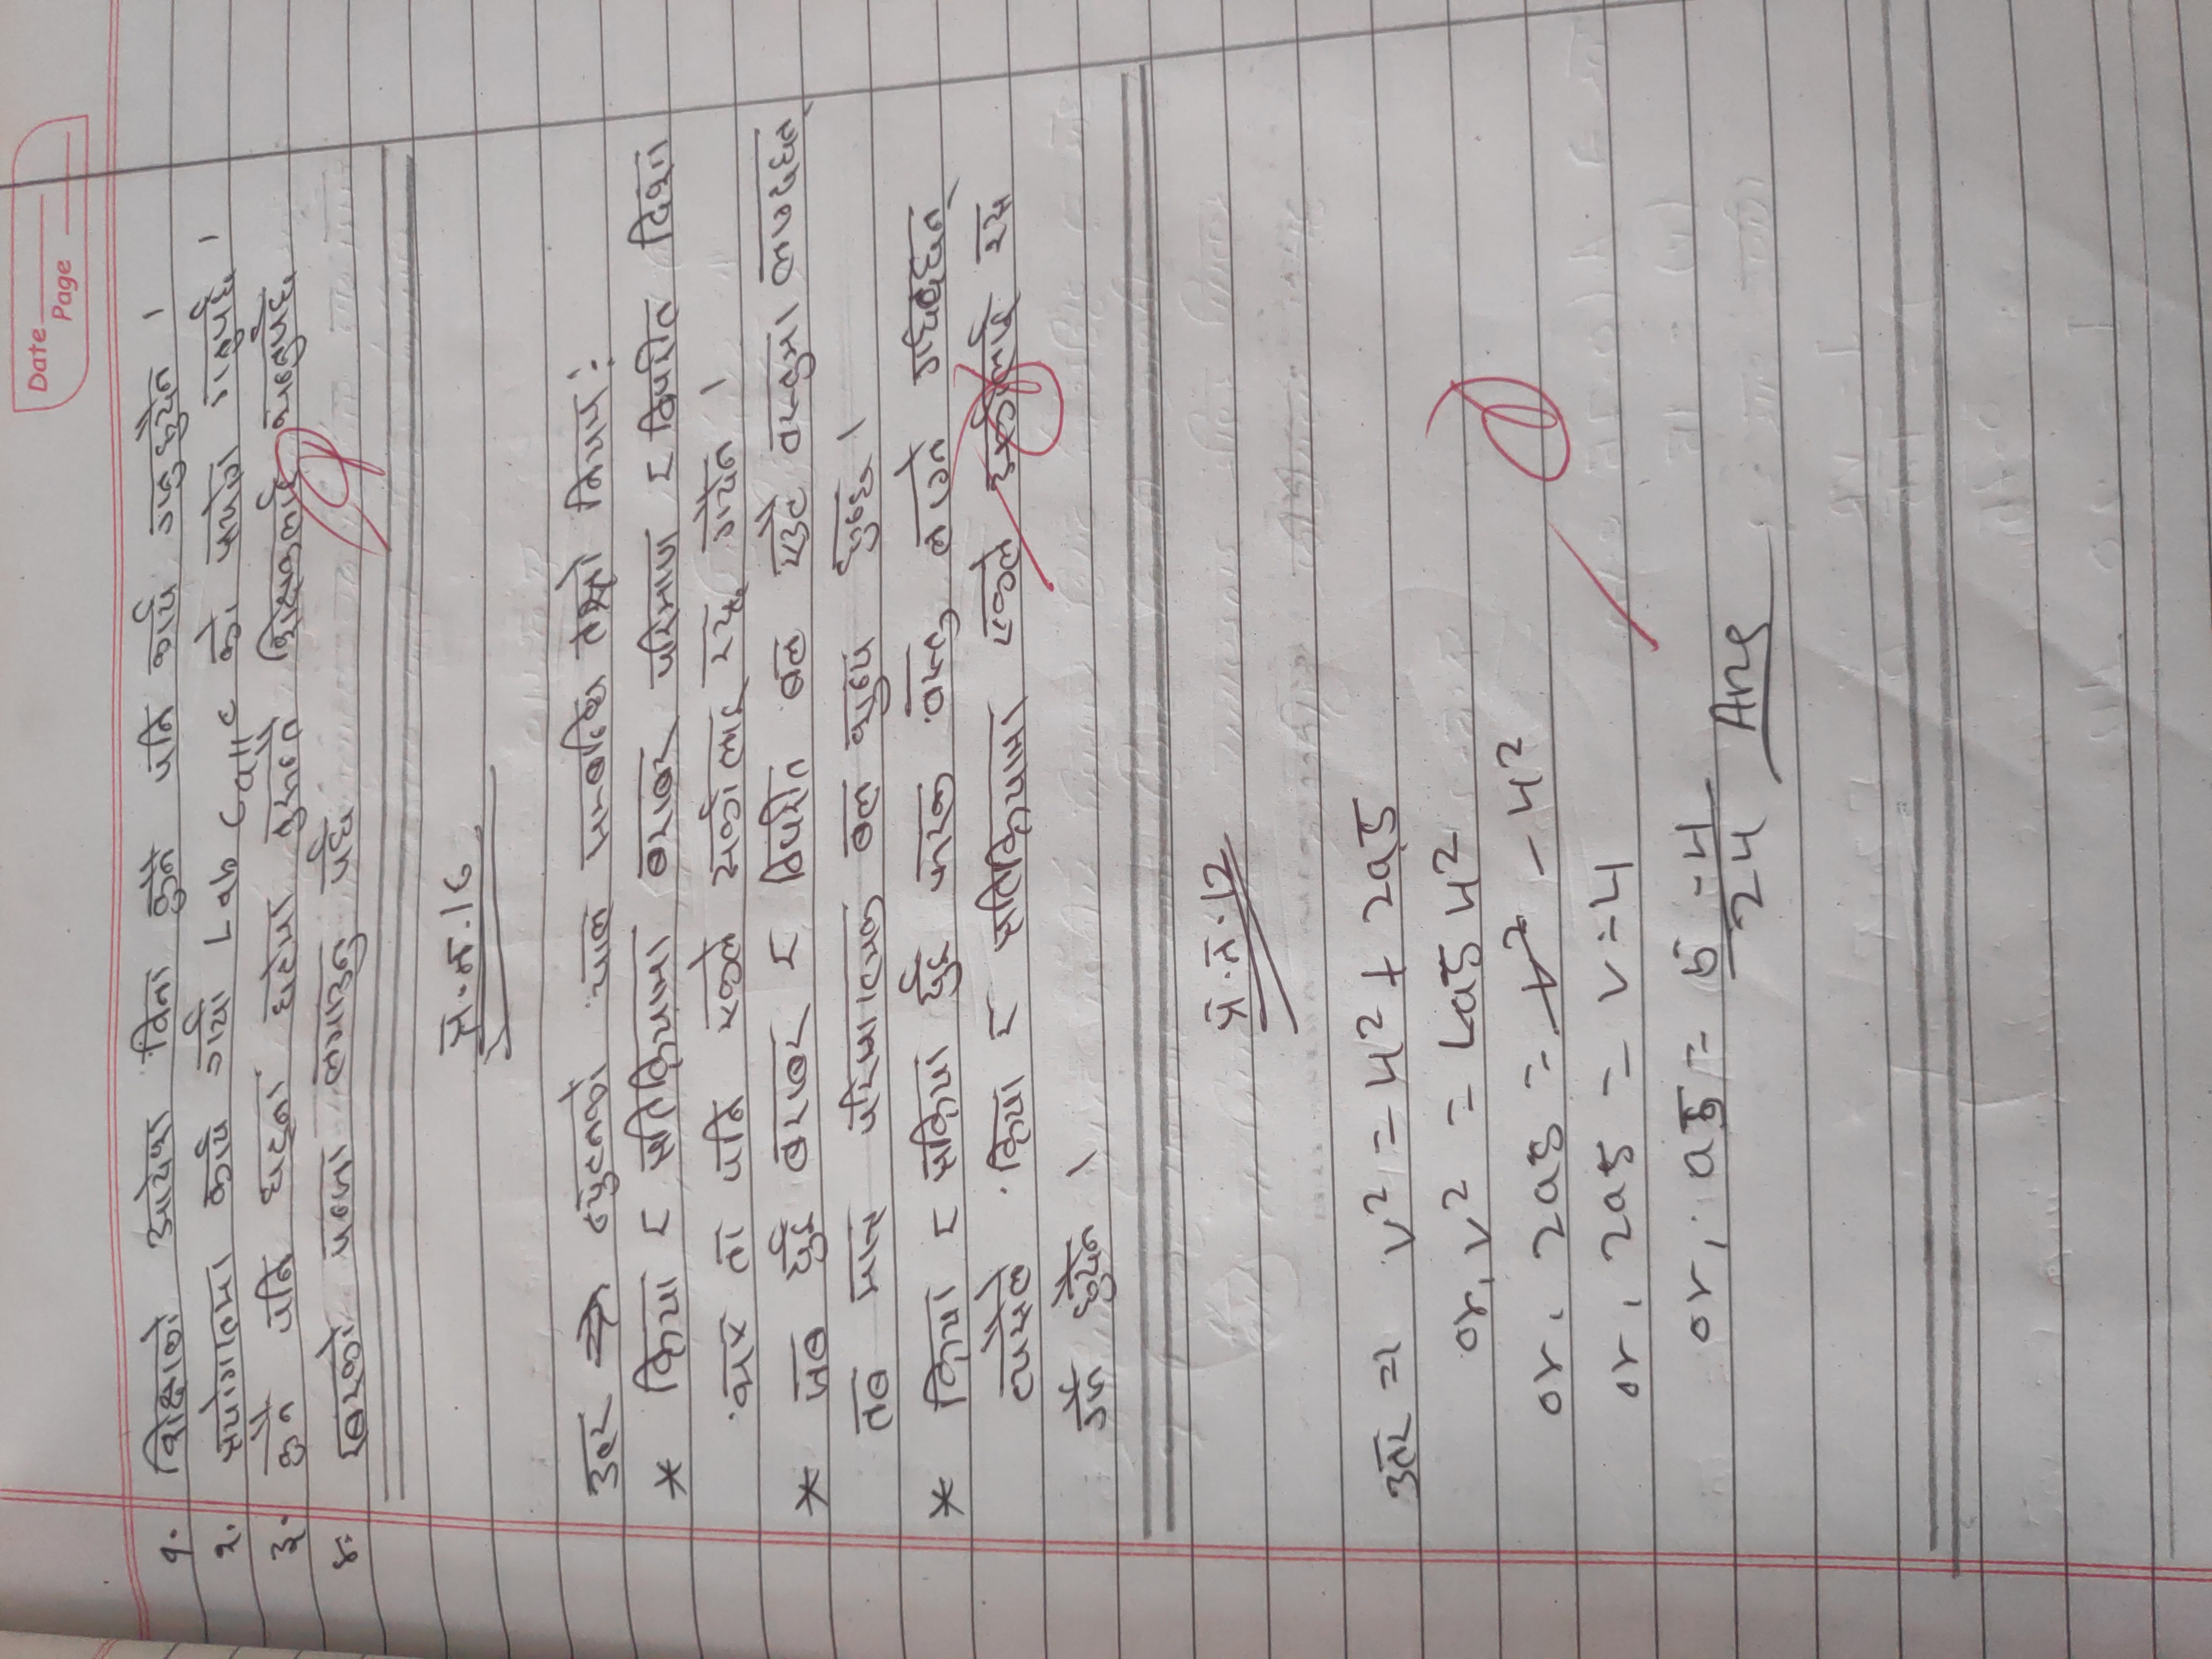 Date
Page
१. शिक्षाको आदेश विना कुनै पनि कार्य गर्नुहुदैन ।
२. प्रयोगात्मा कार्य गर्या Lab को प्रयोग गर्नुपर्छ ।
३. कुनै पनि घट्ना घटेमा तुरुन्तै शिक्षकलाई भन्नुपर्छ
४. रबरको पन्जा लगाउनु पर्छ
प्र.न.16
उत्तर ⇒ न्युटनको चाल सम्बन्धि तेस्रो नियम:
* क्रिया र प्रतिक्रियामा बराबर परिमाण र विपरीत दिशा
भए ता पनि एकले अर्कालाई रद्द गर्दैन ।
* जब दुई बराबर र विपरीत बल एउटै वस्तुमा लाग्दछन्
तब मात्र परिमात्मक बल शुन्य हुन्छ ।
* क्रिया र प्रक्रिया दुई फरक वस्तु लाग्ने गर्छ
त्यसैले क्रिया र प्रतिक्रियामा एकले अर्कालाई रद्द
गर्ने हुदैन ।
प्र.न.12
उतर => v² = u² + 2as
or, v² = Las u²
or, 2as = v² - u²
or, 2as = v - u
or, as = 5 - 4
24 Ans